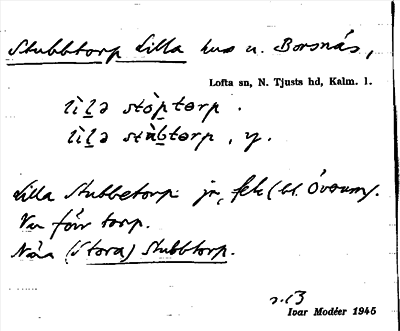 Stubbtorp Lilla hus u. Borsnäs,
Lofta sn, N. Tjusts hd, Kalm. l.
lìlə stòptorp.
lìlə stùbtorp, y.
Lilla Stubbetorp jr, fek (bl. Överum).
Var förr torp.
Nära (Stora) Stubbtorp.
Ivar Modéer 1945